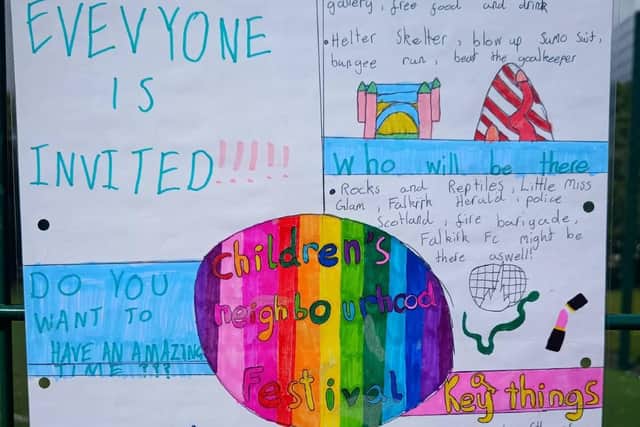 EVEVYONE
IS
INVITED!!!!!
gallery, free food and drink
• Helter Skelter, blow up Sumo Suit,
bungee run, beat the goalkeeper
Who will be there
• Rocks and Reptiles, Little Miss
Glam, Falkirk Herald, police
Scotland, fire barigade,
Falkirk Fc might be
there aswell!
DO YOU
WANT TO
HAVE AN AMAZING
TIME ???
Children's
neighbourhood
Festival
Key things